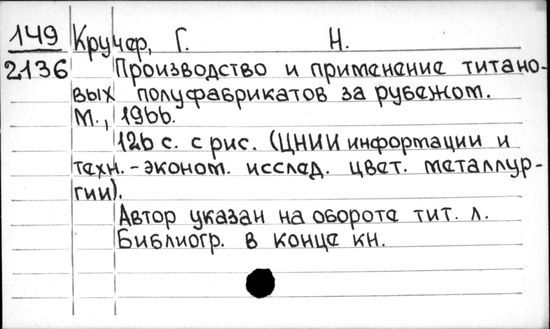 149 Кручер, Г. Н.
2136 Производство и применение титано-
вых полуфабрикатов за рубежом.
М., 1966.
126 с. с рис. (ЦНИИ информации и
техн. - эконом. исслед. цвет. металлур-
гии).
Автор указан на обороте тит. л.
Библиогр. в конце кн.